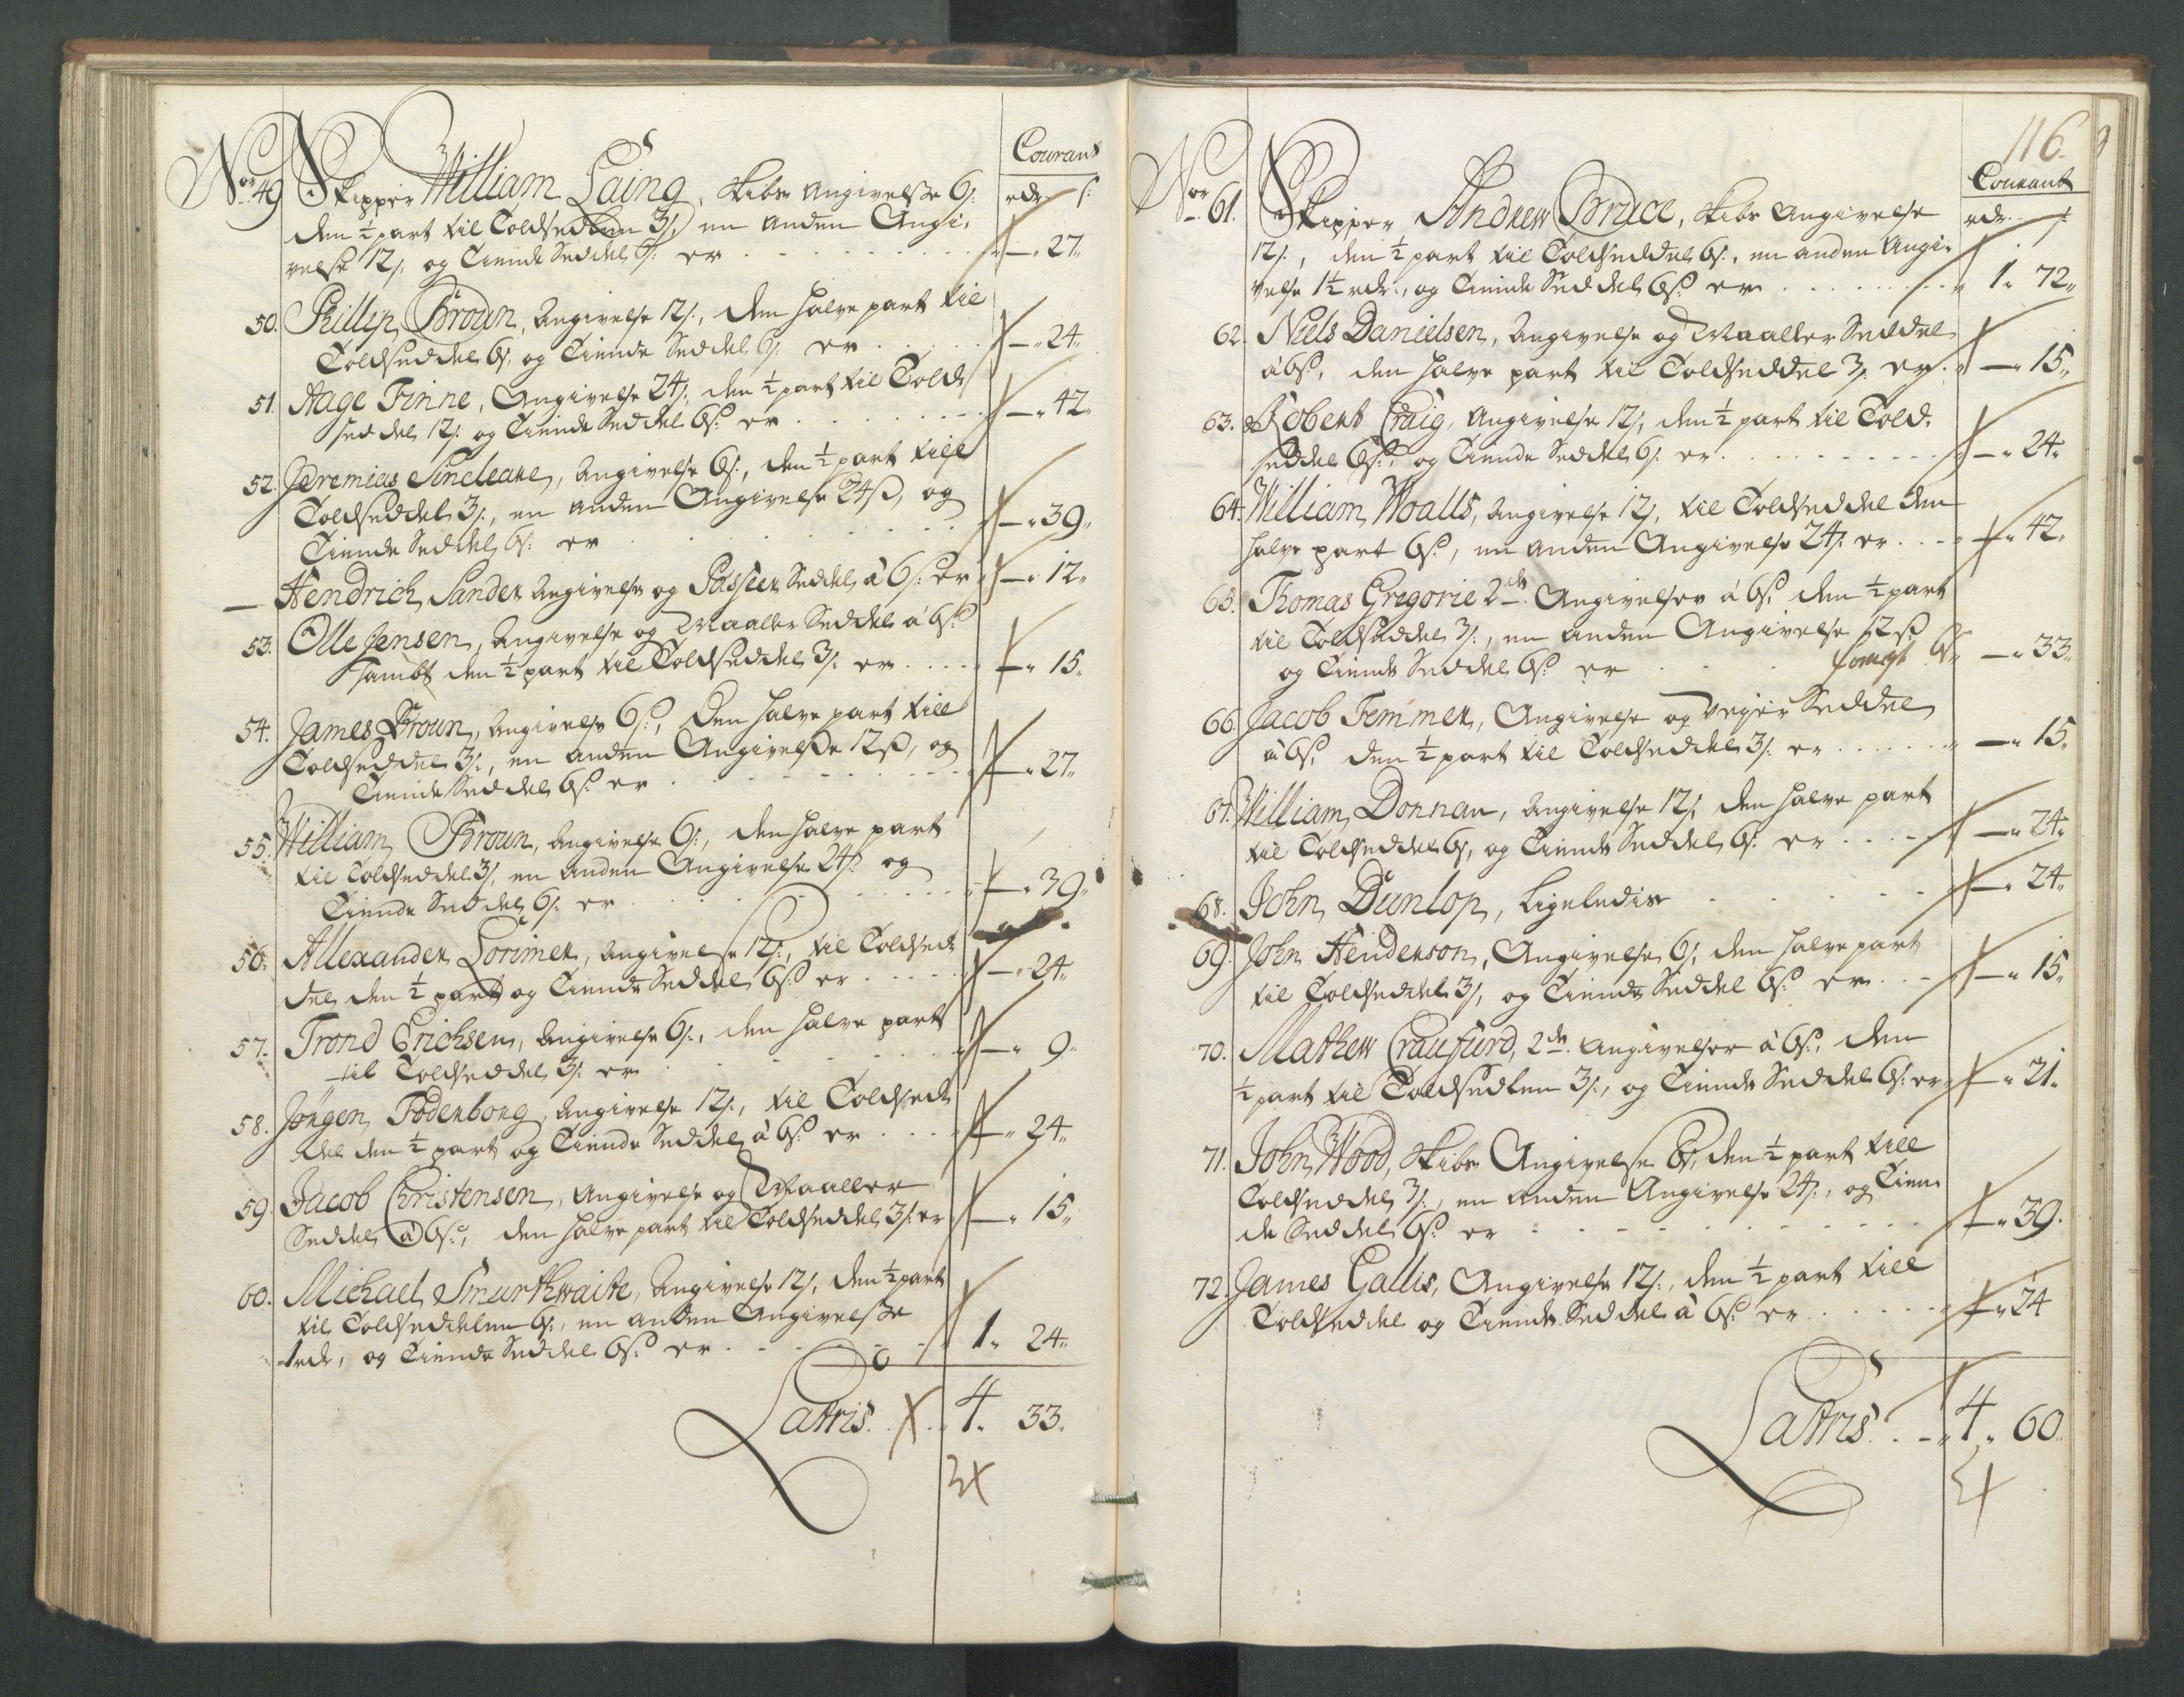 Courant
No. 49 Skipper William Laing, Skibs Angivelse 6/:
rdr. /:
den ½ part til Toldsedlen 3/:, en anden Angi-
velse 12/: og Tiende Seddel 6/: er . . . — „ 27 „
50. Phillip Broun, Angivelse 12/:, den halve part til
Toldseddel 6/:, og Tiende Seddel 6/: er . . . — „ 24 „
51. Aage Finne, Angivelse 24/:, den ½ part til Told-
seddel 12/: og Tiende Seddel 6/: er . . . — „ 42 „
52. Jeremias Sincleare, Angivelse 6/:, den ½ part till
Toldseddel 3/:, en anden Angivelse 24ß, og
Tiende Seddel 6/: er . . . — „ 39 „
— Hendrich Sander Angivelse og Passeer Seddel à 6/: er — „ 12 „
53. Olle Jensen, Angivelse og Maaller Seddel à 6/:
sambt den ½ part til Toldseddel 3/: er . . . — „ 15 „
54. James Broun, Angivelse 6/:, den halve part till
Toldseddel 3/:, en anden Angivelse 12ß, og
Tiende Seddel 6/: er . . . — „ 27 „
55. William Broun, Angivelse 6/:, den halve part
til Toldseddel 3/:, en anden Angivelse 24/: og
Tiende Seddel 6/: er . . . — „ 39 „
56. Allexander Lorimer, Angivelse 12/:, til Toldsed-
del den ½ part og Tiende Seddel 6/: er . . . — „ 24 „
57. Trond Erichsen, Angivelse 6/:, den halve part
til Toldseddel 3/: er . . . — „ 9 „
58. Jörgen Foderborg, Angivelse 12/:, til Toldsed-
del den ½ part og Tiende Seddel à 6/: er . . . — „ 24 „
59. Jacob Christensen, Angivelse og Maaller
Seddel à 6/:, den halve part til Toldseddel 3/: er — „ 15 „
60. Michael Smurthwaite, Angivelse 12/:, den ½ part
til Toldseddelen 6/:, en anden Angivelse
1 rdr, og Tiende Seddel 6/: er . . . 1 „ 24 „
Latris . . 4 „ 33 „
116.
Courant
No. 61. Skipper Andrew Bruce, Skibs Angivelse
rdr. /:
12/:, den ½ part til Toldseddel 6/:, en anden Angi-
velse 1½ rdr., og Tiende Seddel 6/: er . . . 1 „ 72 „
62. Niels Danielsen, Angivelse og Maaller Seddel
à 6/:, den halve part til Toldseddel 3/: er . — „ 15 „
63. Robert Craig, Angivelse 12/:, den ½ part til Told-
seddel 6/:, og Tiende Seddel 6/: er . . . — „ 24 „
64. William Woalls, Angivelse 12/:, til Toldseddel den
halve part 6/:, en anden Angivelse 24/: er . . . — „ 42 „
65. Thomas Gregorie 2de Angivelser à 6/:, den ½ part
til Toldseddel 3/:, en anden Angivelse 12ß
og Tiende Seddel 6/: er . . . — „ 33 „
66. Jacob Femmer, Angivelse og Vejer Seddel
à 6/:, den ½ part til Toldseddel 3/: er . . . — „ 15 „
67. William Donnan, Angivelse 12/:, den halve part
til Toldseddel 6/:, og Tiende Seddel 6/: er . . . — „ 24 „
68. John Dunlop, Ligeledis . . . — „ 24 „
69. John Henderson, Angivelse 6/:, den halve part
til Toldseddel 3/:, og Tiende Seddel 6/: er . . . — „ 15 „
70. Mathew Craufurd, 2de Angivelser à 6/:, den
½ part til Toldsedlen 3/:, og Tiende Seddel 6/: er — „ 21 „
71. John Wood, Skibs Angivelse 6/:, den ½ part till
Toldseddel 3/:, en anden Angivelse 24/:, og Tien-
de Seddel 6/: er . . . — „ 39 „
72. James Gallis, Angivelse 12/:, den ½ part till
Toldseddel og Tiende Seddel à 6/: er . . . — „ 24
Latris . . 4 „ 60 „